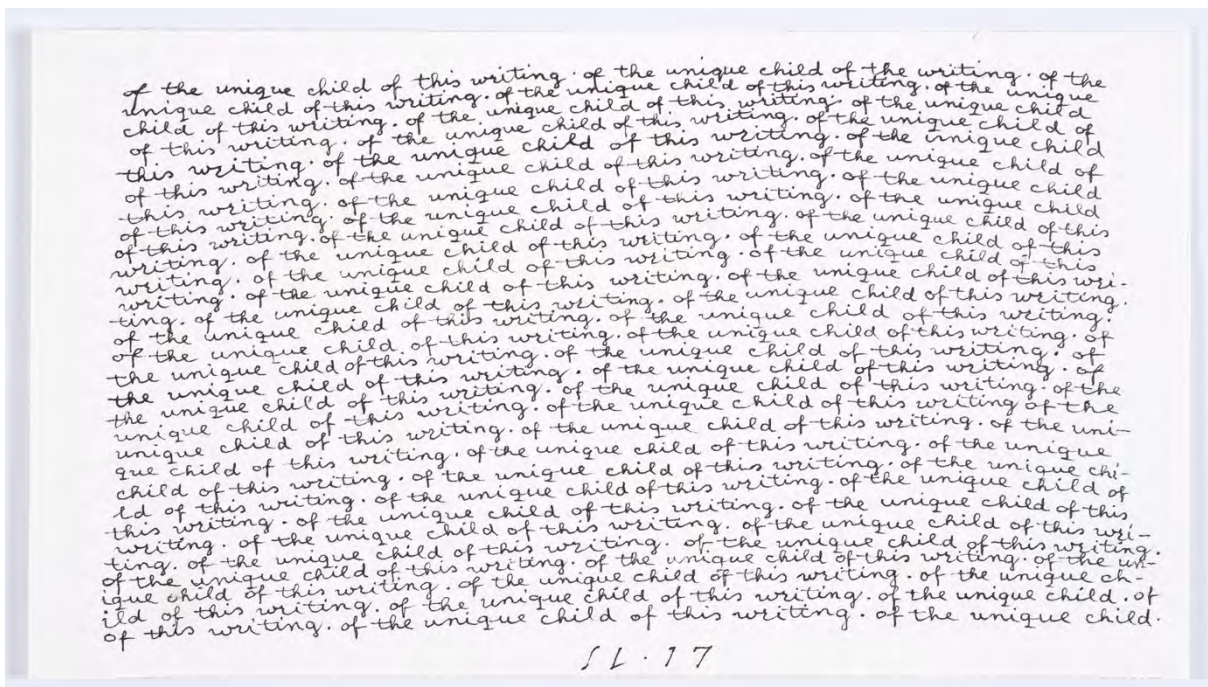 of the unique child of this writing · of the unique child of the writing · of the
unique child of this writing · of the unique child of this writing · of the unique
child of this writing · of the unique child of this writing · of the unique child
of this writing · of the unique child of this writing · of the unique child of
this writing · of the unique child of this writing · of the unique child
of this writing · of the unique child of this writing · of the unique child of
this writing · of the unique child of this writing · of the unique child
of this writing · of the unique child of this writing · of the unique child
of this writing · of the unique child of this writing · of the unique child of this
writing · of the unique child of this writing · of the unique child of this
writing · of the unique child of this writing · of the unique child of this
writing · of the unique child of this writing · of the unique child of this wri-
ting · of the unique child of this writing · of the unique child of this writing ·
of the unique child of this writing · of the unique child of this writing ·
of the unique child of this writing · of the unique child of this writing · of
the unique child of this writing · of the unique child of this writing · of
the unique child of this writing · of the unique child of this writing · of
the unique child of this writing · of the unique child of this writing · of the
unique child of this writing · of the unique child of this writing of the
unique child of this writing · of the unique child of this writing · of the uni-
que child of this writing · of the unique child of this writing · of the unique
child of this writing · of the unique child of this writing · of the unique chi-
ld of this writing · of the unique child of this writing · of the unique child of
this writing · of the unique child of this writing · of the unique child of this
writing · of the unique child of this writing · of the unique child of this wri-
ting · of the unique child of this writing · of the unique child of this writing ·
of the unique child of this writing · of the unique child of this writing · of the un-
ique child of this writing · of the unique child of this writing · of the unique ch-
ild of this writing · of the unique child of this writing · of the unique child · of
of this writing · of the unique child of this writing · of the unique child ·
SL · 17